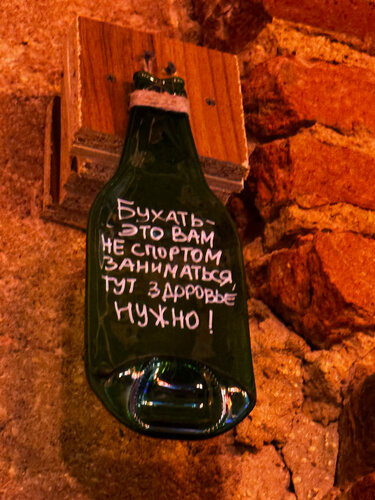 БУХАТЬ-
ЭТО ВАМ
НЕ СПОРТОМ
ЗАНИМАТЬСЯ,
ТУТ ЗДОРОВЬЕ
НУЖНО!